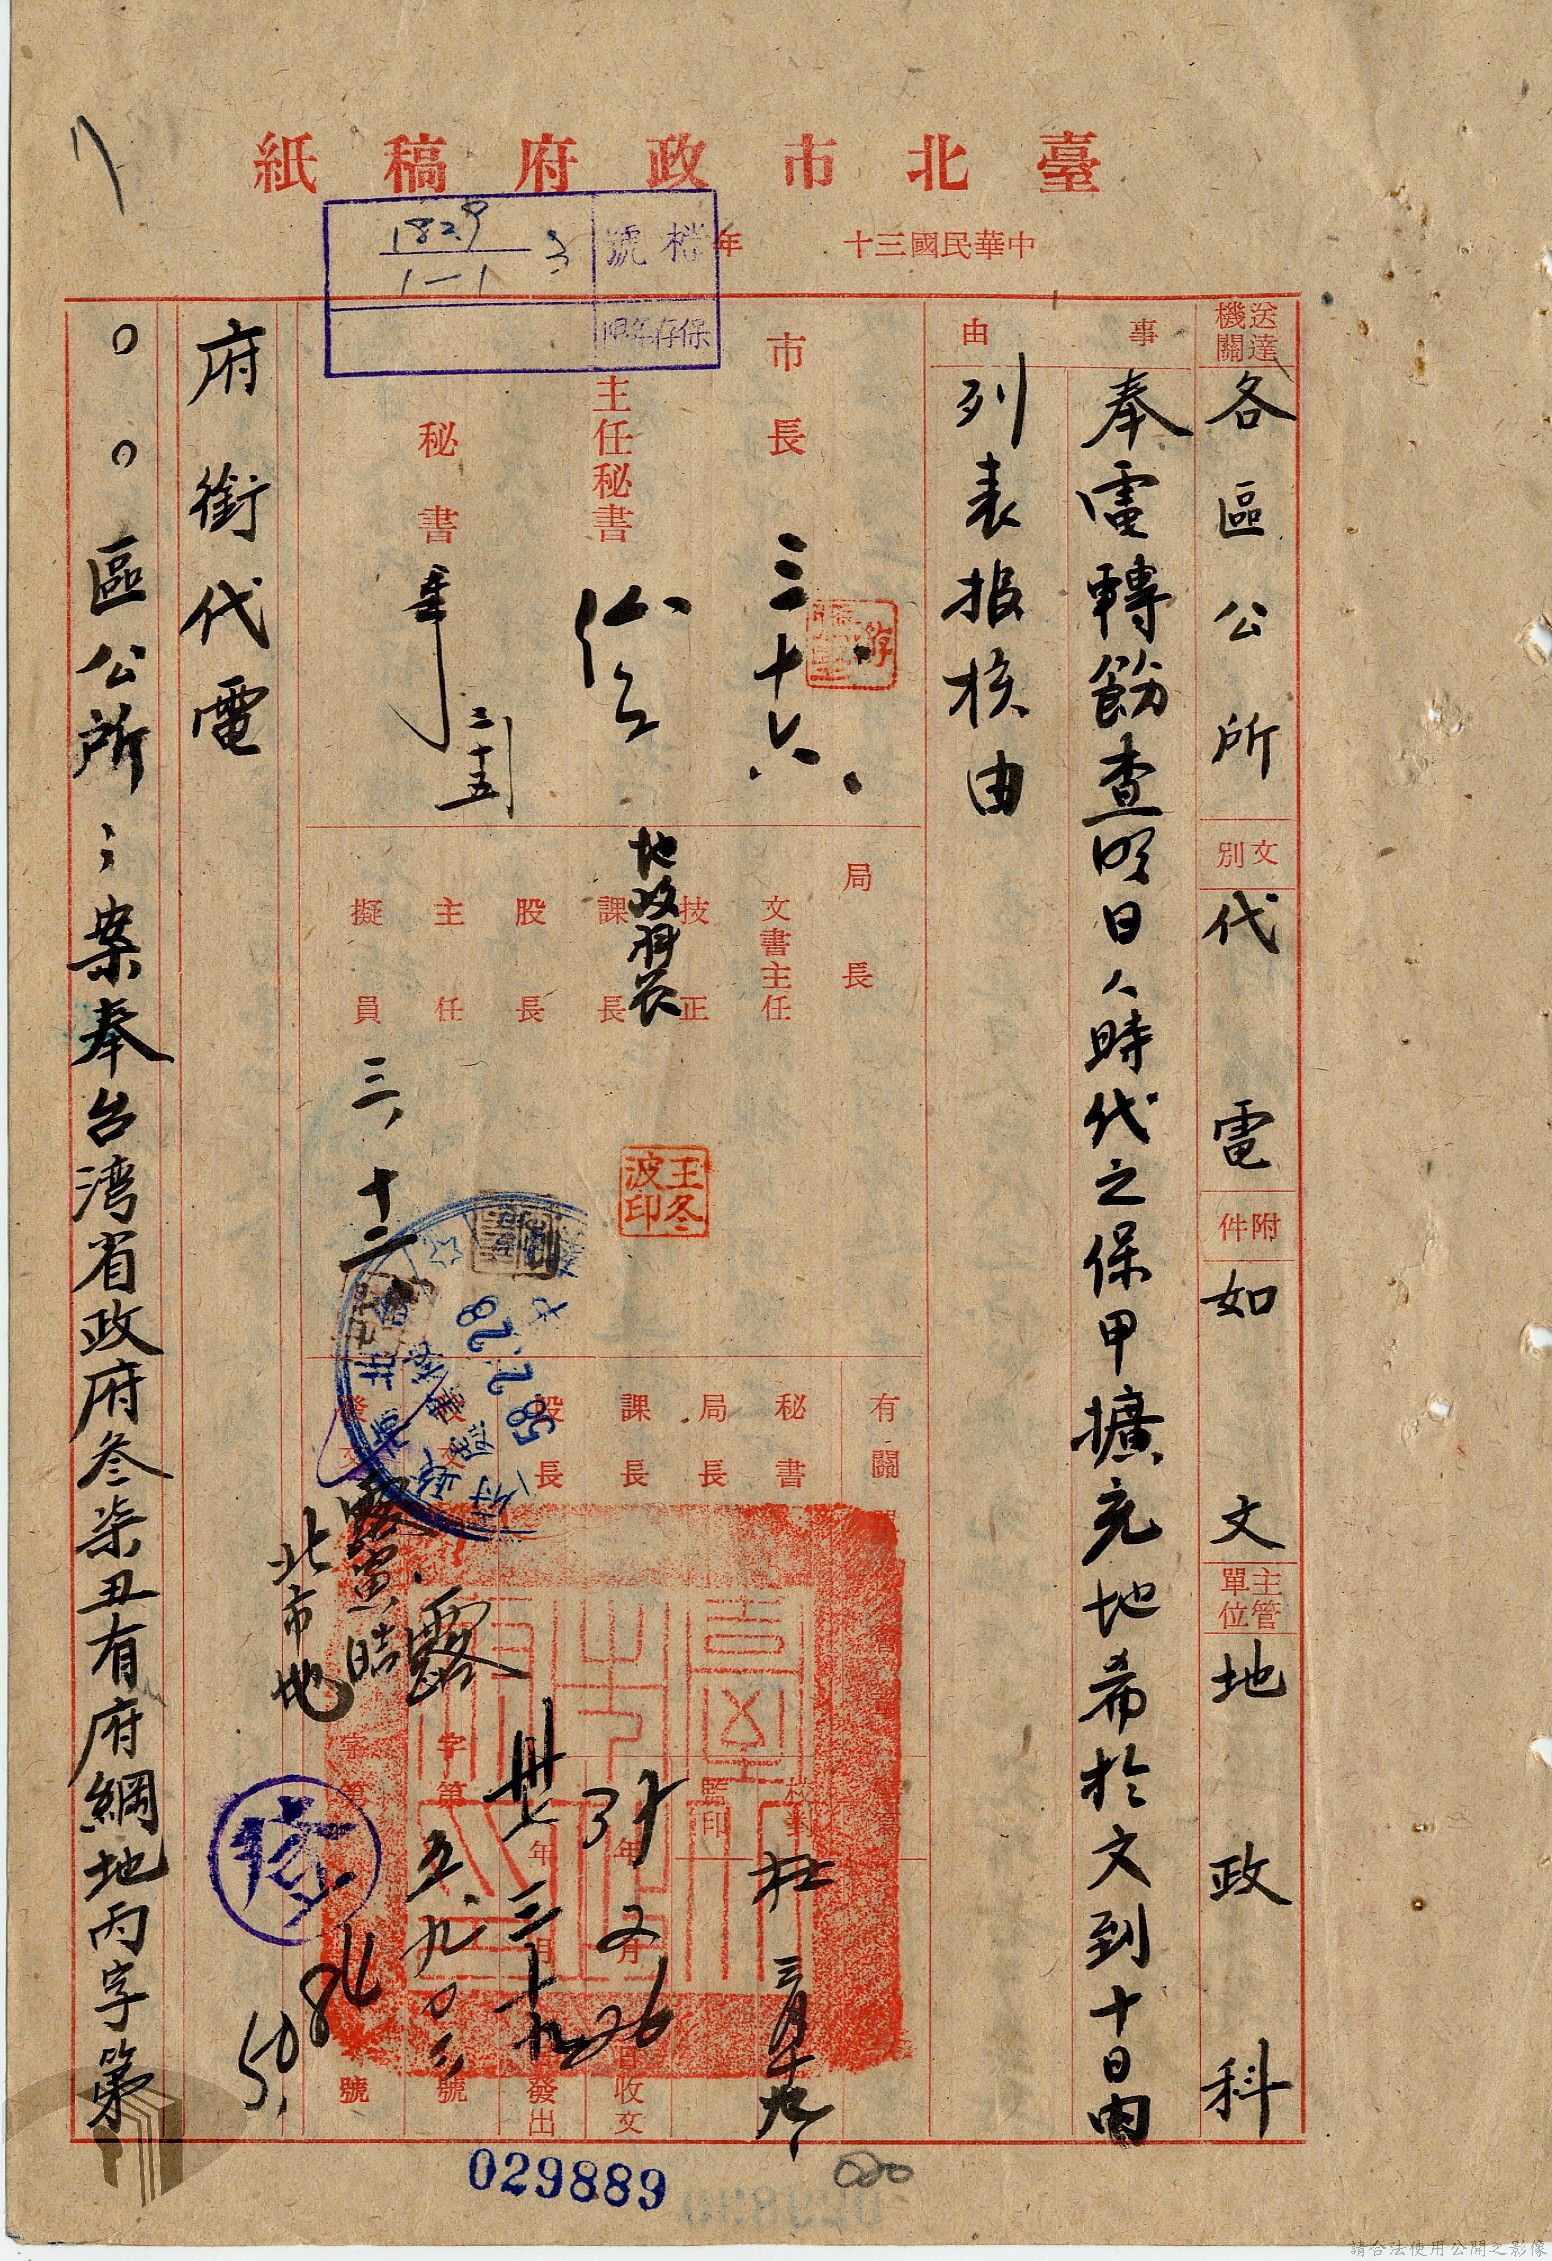 臺北市政府稿紙
中華民國三十 年
檔號 1829
1—1 3
保存年限
送達機關 各區公所
文別 代電
附件 如文
主管單位 地政科
事由
奉電轉飭查明日人時代之保甲擴充地希於文到十日內
列表报核由
市長 三十六
主任秘書
秘書 三十五
局長
文書主任
技正
課長 地政科長
股長
主任
擬員 三、十二
王冬波印
58.2.28
有關
秘書
局長
課長
股長
校對
監印
三月十九
收文 37年2月26日
發出 卅七年三月十九
露字第五九〇 號
露寅皓
北市地
字第 號
府銜代電
○○區公所：案奉台湾省政府叁柒丑有府綱地丙字第
029889
請合法使用公開之影像